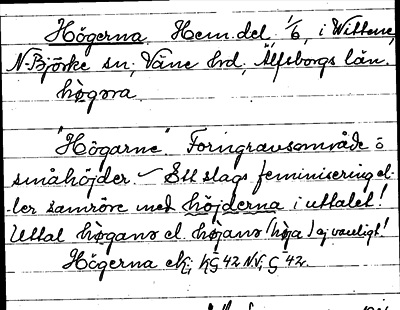 Högerna. Hem.del. 1/6, i Wittene,
N. Björke sn, Väne hd, Älfsborgs län.
högöra.
"Högarne". Forngravsområde ö
småhöjder. – Ett slags feminisering el-
ler samröre med höjderna i uttalet!
Uttal høgano el. højano (høja) ej vanligt!
Högerna ek; 42 NV; G 42.